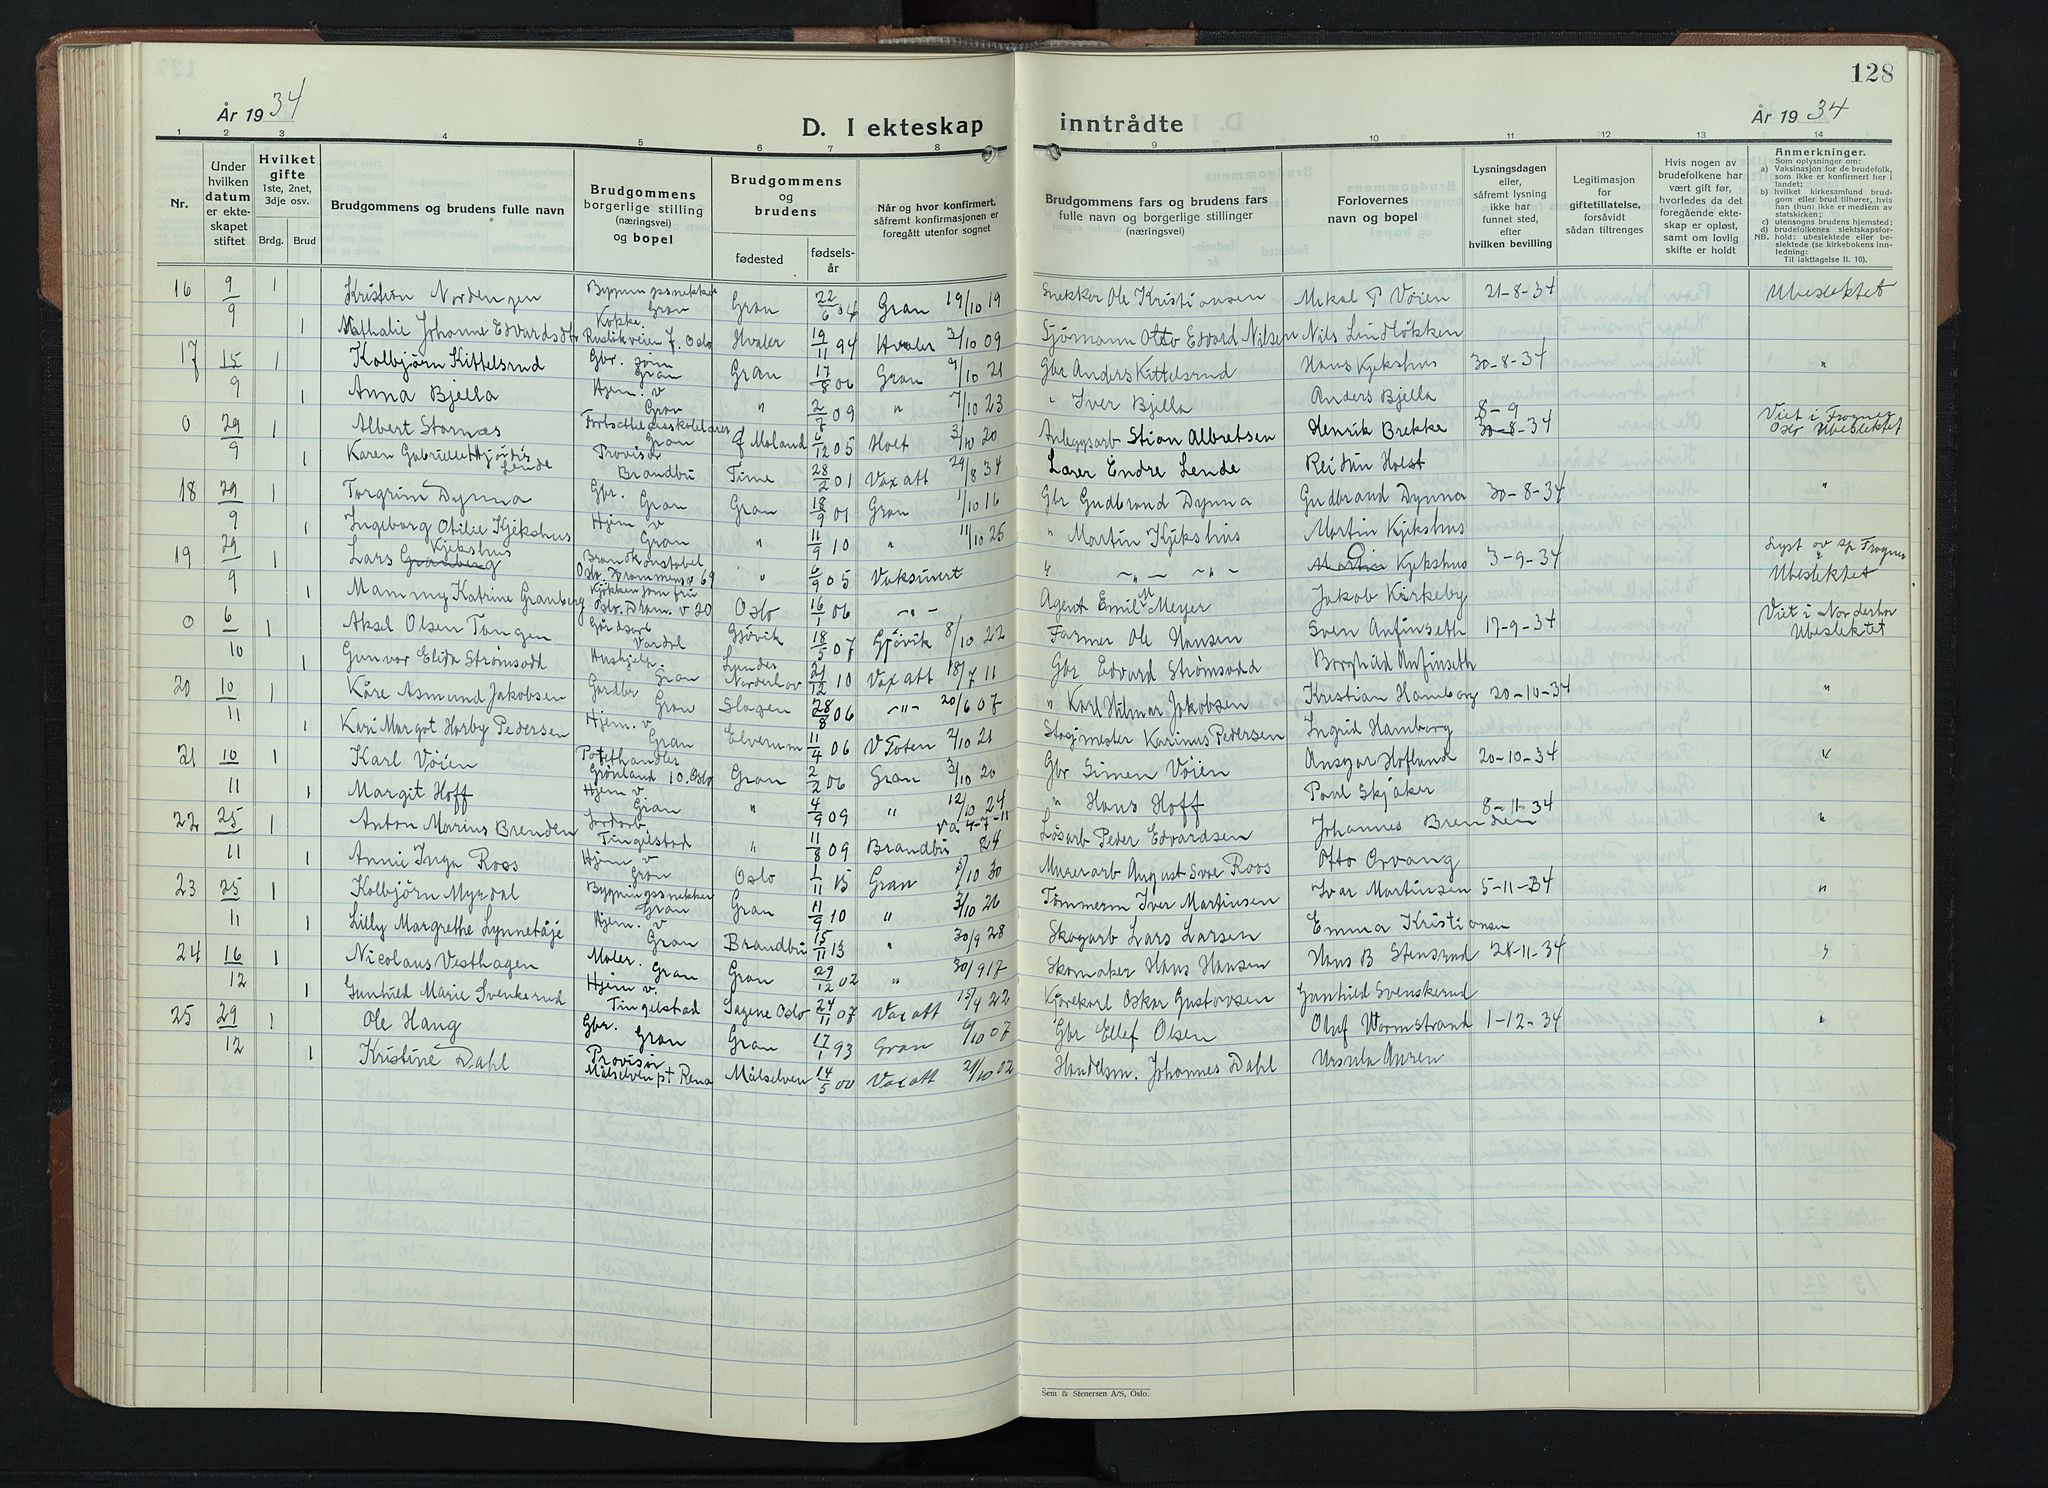 128
År 1934
D. I ekteskap inntrådte
År 1934
1 2 3 4 5 6 7 8 9 10 11 12 13 14
Nr.
Under hvilken datum er ekteskapet stiftet
Hvilket gifte 1ste, 2net, 3dje osv.
Brdg. Brud
Brudgommens og brudens fulle navn
Brudgommens borgerlige stilling (næringsvei) og bopel
Brudgommens og brudens
fødested
fødselsår
Når og hvor konfirmert, såfremt konfirmasjonen er foregått utenfor sognet
Brudgommens fars og brudens fars fulle navn og borgerlige stillinger (næringsvei)
Forlovernes navn og bopel
Lysningsdagen eller, såfremt lysning ikke har funnet sted, efter hvilken bevilling
Legitimasjon for giftetillatelse, forsåvidt sådan tiltrenges
Hvis nogen av brudefolkene har vært gift før, hvorledes da det foregående ekteskap er opløst, samt om lovlig skifte er holdt
Anmerkninger.
Som oplysninger om:
a) Vaksinasjon for de brudefolk, som ikke er konfirmert her i landet;
b) hvilket kirkesamfund brudgom eller brud tilhører, hvis han (hun) ikke er medlem av statskirken;
c) utensogns brudens hjemsted;
d) brudefolkenes slektskapsforhold: ubeslektede eller beslektede (se kirkebokens innledning:
NB.
Til iakttagelse II. 10).
16 9/9 1 Kristian Nordengen Bygningssnekker Gran Gran 22/6 04 Gran 19/10 19 Snekker Ole Kristiansen Mikal P Vøien 21-8-34 Ubeslektet
1 Nathalie Johanne Edvardsdtr Kokke Rusløkveien 7. Oslo Hvaler 19/11 94 Hvaler 3/10 09 Sjømann Otto Edvard Nilsen Nils Lindløkken
17 15/9 1 Kolbjørn Kittelsrud Gbr. sønn Gran Gran 17/8 06 Gran 9/10 21 Gbr Anders Kittelsrud Hans Kjekshus 30-8-34 "
1 Anna Bjella Hjem. v Gran " 2/7 09 " 7/10 23 " Iver Bjella Anders Bjella
0 29/9 1 Albert Stornæs Gran 6/12 05 Holt 3/10 20 Anleggsarb Stian Albretsen Henrik Brekke 8-9 30-8-34 Viet i Frogner Oslo Ubeslektet
1 Karen Gabrielle Hjørdis Lende Provisor Brandbu Time 28/2 01 Vax att 29/8 34 Lærer Endre Lende Reidun Holst
18 29/9 1 Torgrim Dynna Gbr. Gran Gran 18/9 01 Gran 1/10 16 Gbr Gudbrand Dynna Gudbrand Dynna 30-8-34 "
1 Ingeborg Otilie Kjekshus Hjem v Gran " 11/9 10 " 11/10 25 " Martin Kjekshus Martin Kjekshus
19 29/9 1 Lars Granberg Kjekshus Brandkonstabel Oslo. Drammensv 69 " 6/9 05 Vaksinert " -"- -"- Martin Kjekshus 3-9-34 Lyst av sp Frogner Ubeslektet
1 Mammy Katrine Granberg Kjøkken jomfru Oslo. Dram. v 20 Oslo 16/1 06 -"- Agent Emil M Meyer Jakob Kirkeby
0 6/10 1 Aksel Olsen Tangen Gårdsarb Vardal Gjøvik 18/5 07 Gjøvik 8/10 22 Farmer Ole Hansen Sven Anfinseth 17-9-34 Viet i Norderhov Ubeslektet
1 Gunvor Elida Strømsodd Hushjelp. Gran Lunder Norderhov 21/12 10 Vax att 18/7 11 Gbr Edvard Strømsodd Borghild Anfinseth
20 10/11 1 Kåre Asmund Jakobsen Gardbr Gran Slagen 28/8 06 -"- 20/6 07 " Karl Hilmar Jakobsen Kristian Hamborg 20-10-34 "
1 Kari Margot Horby Pedersen Hjem. v Gran Elverum 11/4 06 V Toten 2/10 21 Karinus Pedersen Ingrid Hamborg
21 10/11 1 Karl Vøien Potethandler Grønland 10. Oslo Gran 2/2 06 Gran 3/10 20 Gbr Simen Vøien Ansgar Hofland 20-10-34 "
1 Margit Hoff Hjem v Gran " 4/9 09 " 12/10 24 " Hans Hoff Paul Skjåker
22 25/11 1 Anton Marius Brenden Jordarb Tingelstad " 11/8 09 Brandbu 24 Løsarb Peder Edvardsen Johannes Brenden 8-11-34 "
1 Annie Inga Roos Hjem v Gran Oslo 1/11 15 Gran 5/10 30 Murerarb August Roos Otto Orvang
23 25/11 1 Kolbjørn Myrdal Bygningssnekker Gran Gran 11/9 10 " 3/10 26 Tømmerm Iver Martinsen Ivar Martinsen 5-11-34 "
1 Lilly Margrethe Lynnebåje Hjem. v Gran Brandbu 15/11 13 " 30/9 28 Skogarb Lars Larsen Emma Kristiansen
24 16/12 1 Nicolaus Vesthagen Maler. Gran Gran 29/12 02 " 30/9 17 Skomaker Hans Hansen Hans B Stensrud 28-11-34 "
1 Gunhild Marie Svenkerud Hjem v. Tingelstad Sagene Oslo 24/11 07 Vax att 15/9 22 Kjørekarl Oskar Gustavsen Gunhild Svenskerud
25 29/12 1 Ole Haug Gbr. Gran Gran 17/1 93 Gran 6/10 07 Gbr Ellef Olsen Oluf Wormstrand 1-12-34 "
1 Kristine Dahl Provisor Målselven pt Rena Målselven 14/5 00 Vax att 21/10 02 Handelsm. Johannes Dahl Ursula Auren
Sem & Stenersen A/S, Oslo.